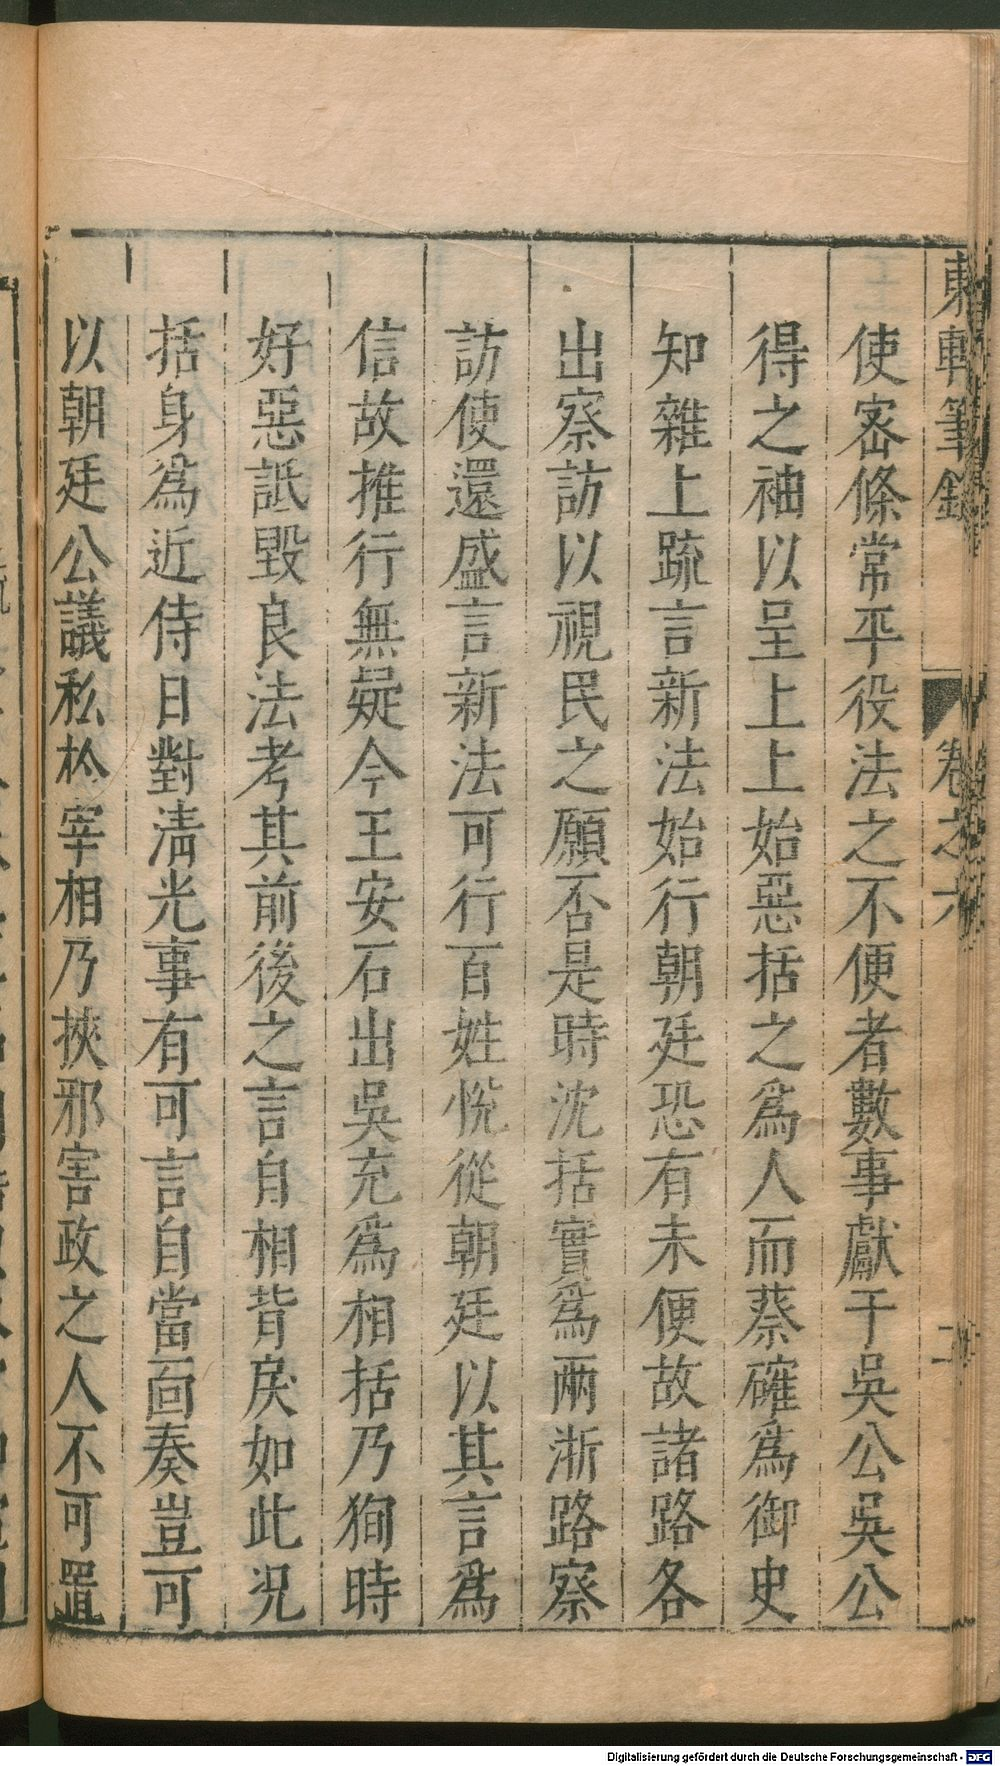 東軒筆錄 卷之六 二
使宻條常平役法之不便者數事獻于吳公吳公
得之袖以呈上上始惡括之爲人而蔡確爲御史
知雜上疏言新法始行朝廷恐有未便故諸路各
出察訪以視民之願否是時沈括實爲兩浙路察
訪使還盛言新法可行百姓悅從朝廷以其言爲
信故推行無疑今王安石出吳充爲相括乃狥時
好惡詆毀良法考其前後之言自相背戾如此况
括身爲近侍日對清光事有可言自當靣奏豈可
以朝廷公議私於宰相乃挾邪害政之人不可置
Digitalisierung gefördert durch die Deutsche Forschungsgemeinschaft - DFG